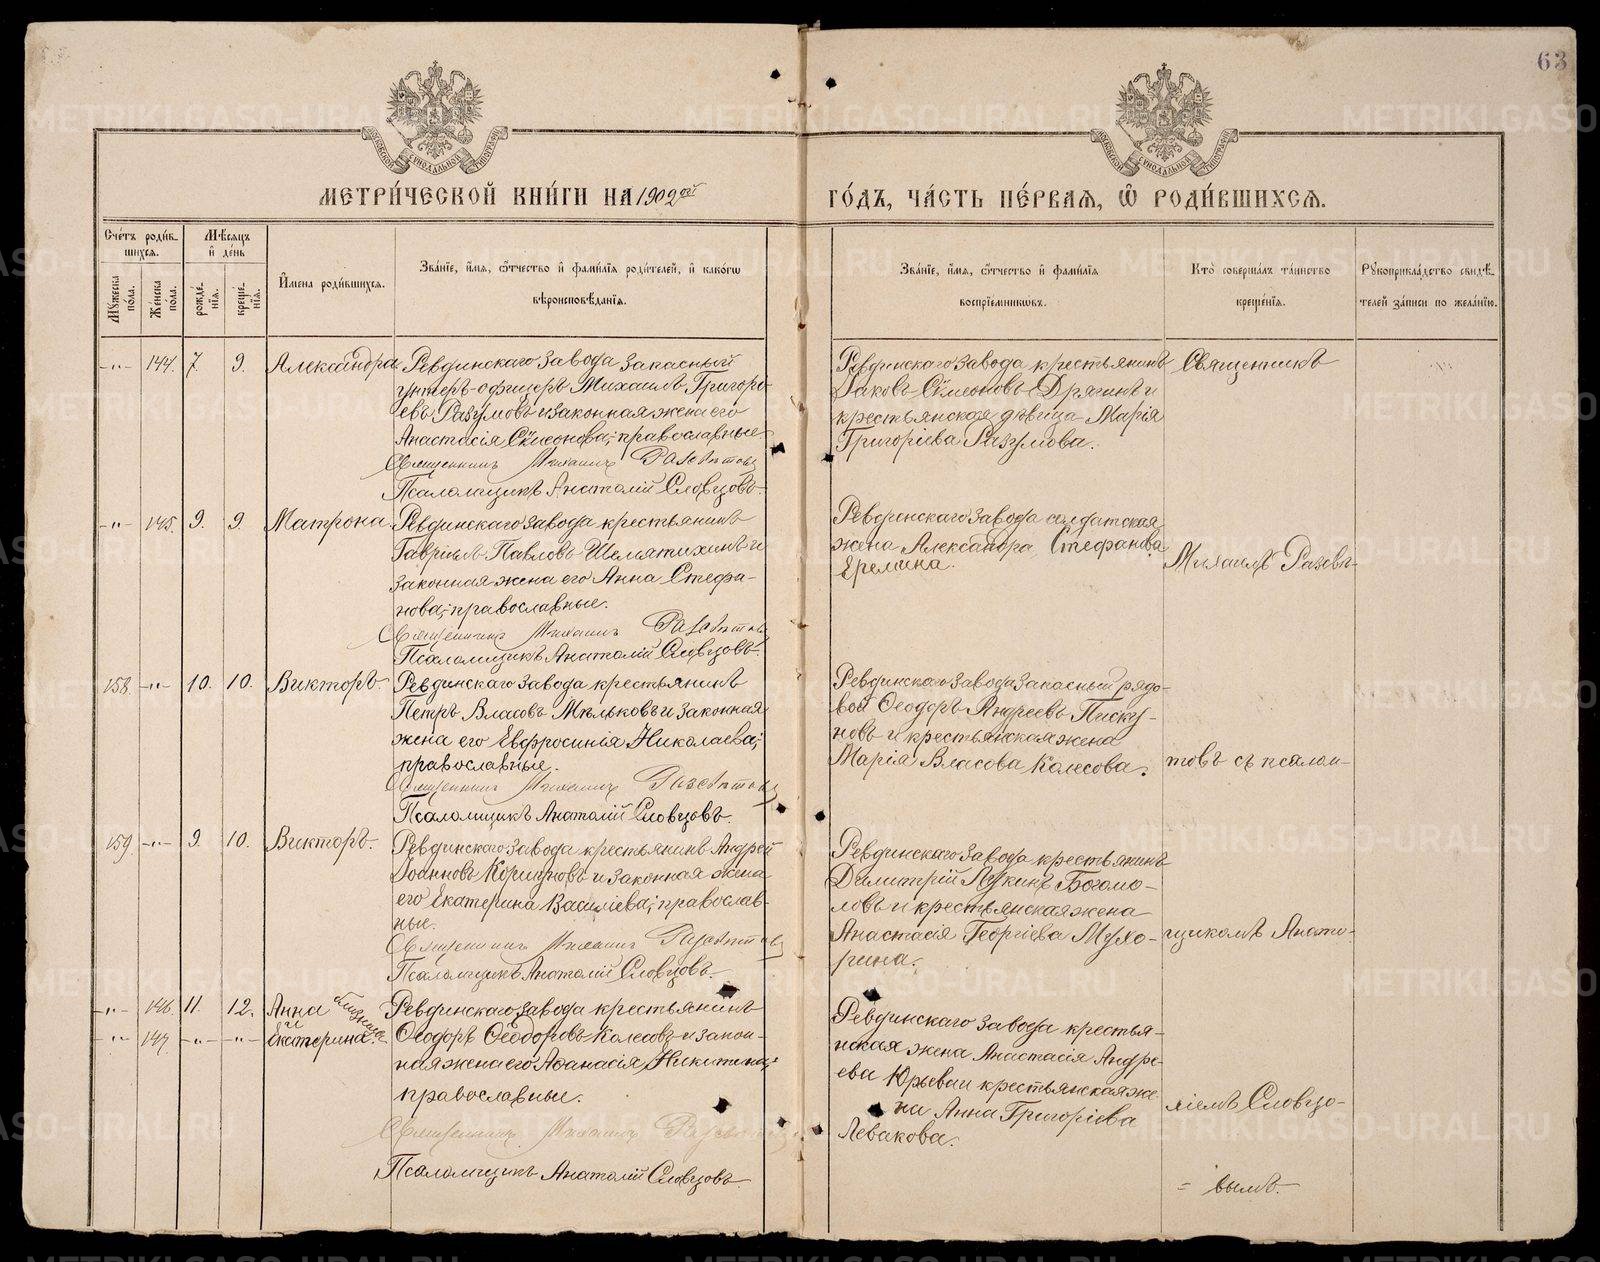 63
МОСКОВСКОЙ СѴНОДАЛЬНОЙ ТИПОГРАФІИ
МОСКОВСКОЙ СѴНОДАЛЬНОЙ ТИПОГРАФІИ
МЕТРИ́ЧЕСКОЙ КНИ́ГИ НА 1902 ой
ГО́ДЪ, ЧА́СТЬ ПЕ́РВАѦ, Ѽ РОДИ́ВШИХСѦ.
Сче́тъ роди́вшихсѧ.
Мꙋ́жеска по́ла.
Же́нска по́ла.
Мѣ́сѧцъ и҆ де́нь
рожде́нїѧ.
креще́нїѧ.
И҆мена роди́вшихсѧ.
Зва́нїе, и҆́мѧ, ѻ҆́тчество и҆ фами́лїѧ роди́телей, и҆ како́гѡ
вѣроисповѣ́данїѧ.
Зва́нїе, и҆́мѧ, ѻ҆́тчество и҆ фами́лїѧ
воспрїе́мникѡвъ.
Кто̀ соверша́лъ та́инство
креще́нїѧ.
Рꙋкоприкла́дство свидѣ́телей за́писи по жела́нїю.
-"- 144. 7. 9. Александра.
Ревдинскаго завода запасный
унтеръ-офицеръ Михаилъ Григорьевъ Разумовъ и законная жена его
Анастасія Сѵмеонова; православные
Священникъ Михаилъ
Псаломщикъ Анатолій Словцовъ.
Ревдинскаго завода крестьянинъ
Іаковъ Сѵмеоновъ Дрягинъ и
крестьянская дѣвица Марія
Григоріева Разумова.
Священникъ
-"- 145. 9. 9. Матрона.
Ревдинскаго завода крестьянинъ
Гавріилъ Павловъ Шемятихинъ и
законная жена его Анна Стефанова; православные.
Священникъ Михаилъ
Псаломщикъ Анатолій Словцовъ.
Ревдинскаго завода солдатская
жена Александра Стефанова
Еремина.
Михаилъ
158. -"- 10. 10. Викторъ.
Ревдинскаго завода крестьянинъ
Петръ Власовъ Мѣльковъ и законная
жена его Евфросинія Николаева;
православные.
Священникъ Михаилъ
Псаломщикъ Анатолій Словцовъ.
Ревдинскаго завода запасный рядовой Ѳеодоръ Андреевъ Пискуновъ и крестьянская жена
Марія Власова Колесова.
товъ съ псалом-
159. -"- 9. 10. Викторъ.
Ревдинскаго завода крестьянинъ Андрей
Іоанновъ Коршуновъ и законная жена
его Екатерина Василіева; православные.
Священникъ Михаилъ
Псаломщикъ Анатолій Словцовъ.
Ревдинскаго завода крестьянинъ
Димитрій Лукинъ Богомоловъ и крестьянская жена
Анастасія Георгіева Мухорина.
щикомъ Анато-
-"- 146. 11. 12. Анна
и близнецы
-"- 147. -"- -"- Екатерина
Ревдинскаго завода крестьянинъ
Ѳеодоръ Ѳеодоровъ Колесовъ и законная жена его Аѳанасія Никитина;
православные.
Священникъ Михаилъ
Псаломщикъ Анатолій Словцовъ.
Ревдинскаго завода крестьянская жена Анастасія Андреева Юрьева и крестьянская жена Анна Григоріева
Левакова.
ліемъ Словцо-
= вымъ.
METRIKI.GASO-URAL.RU